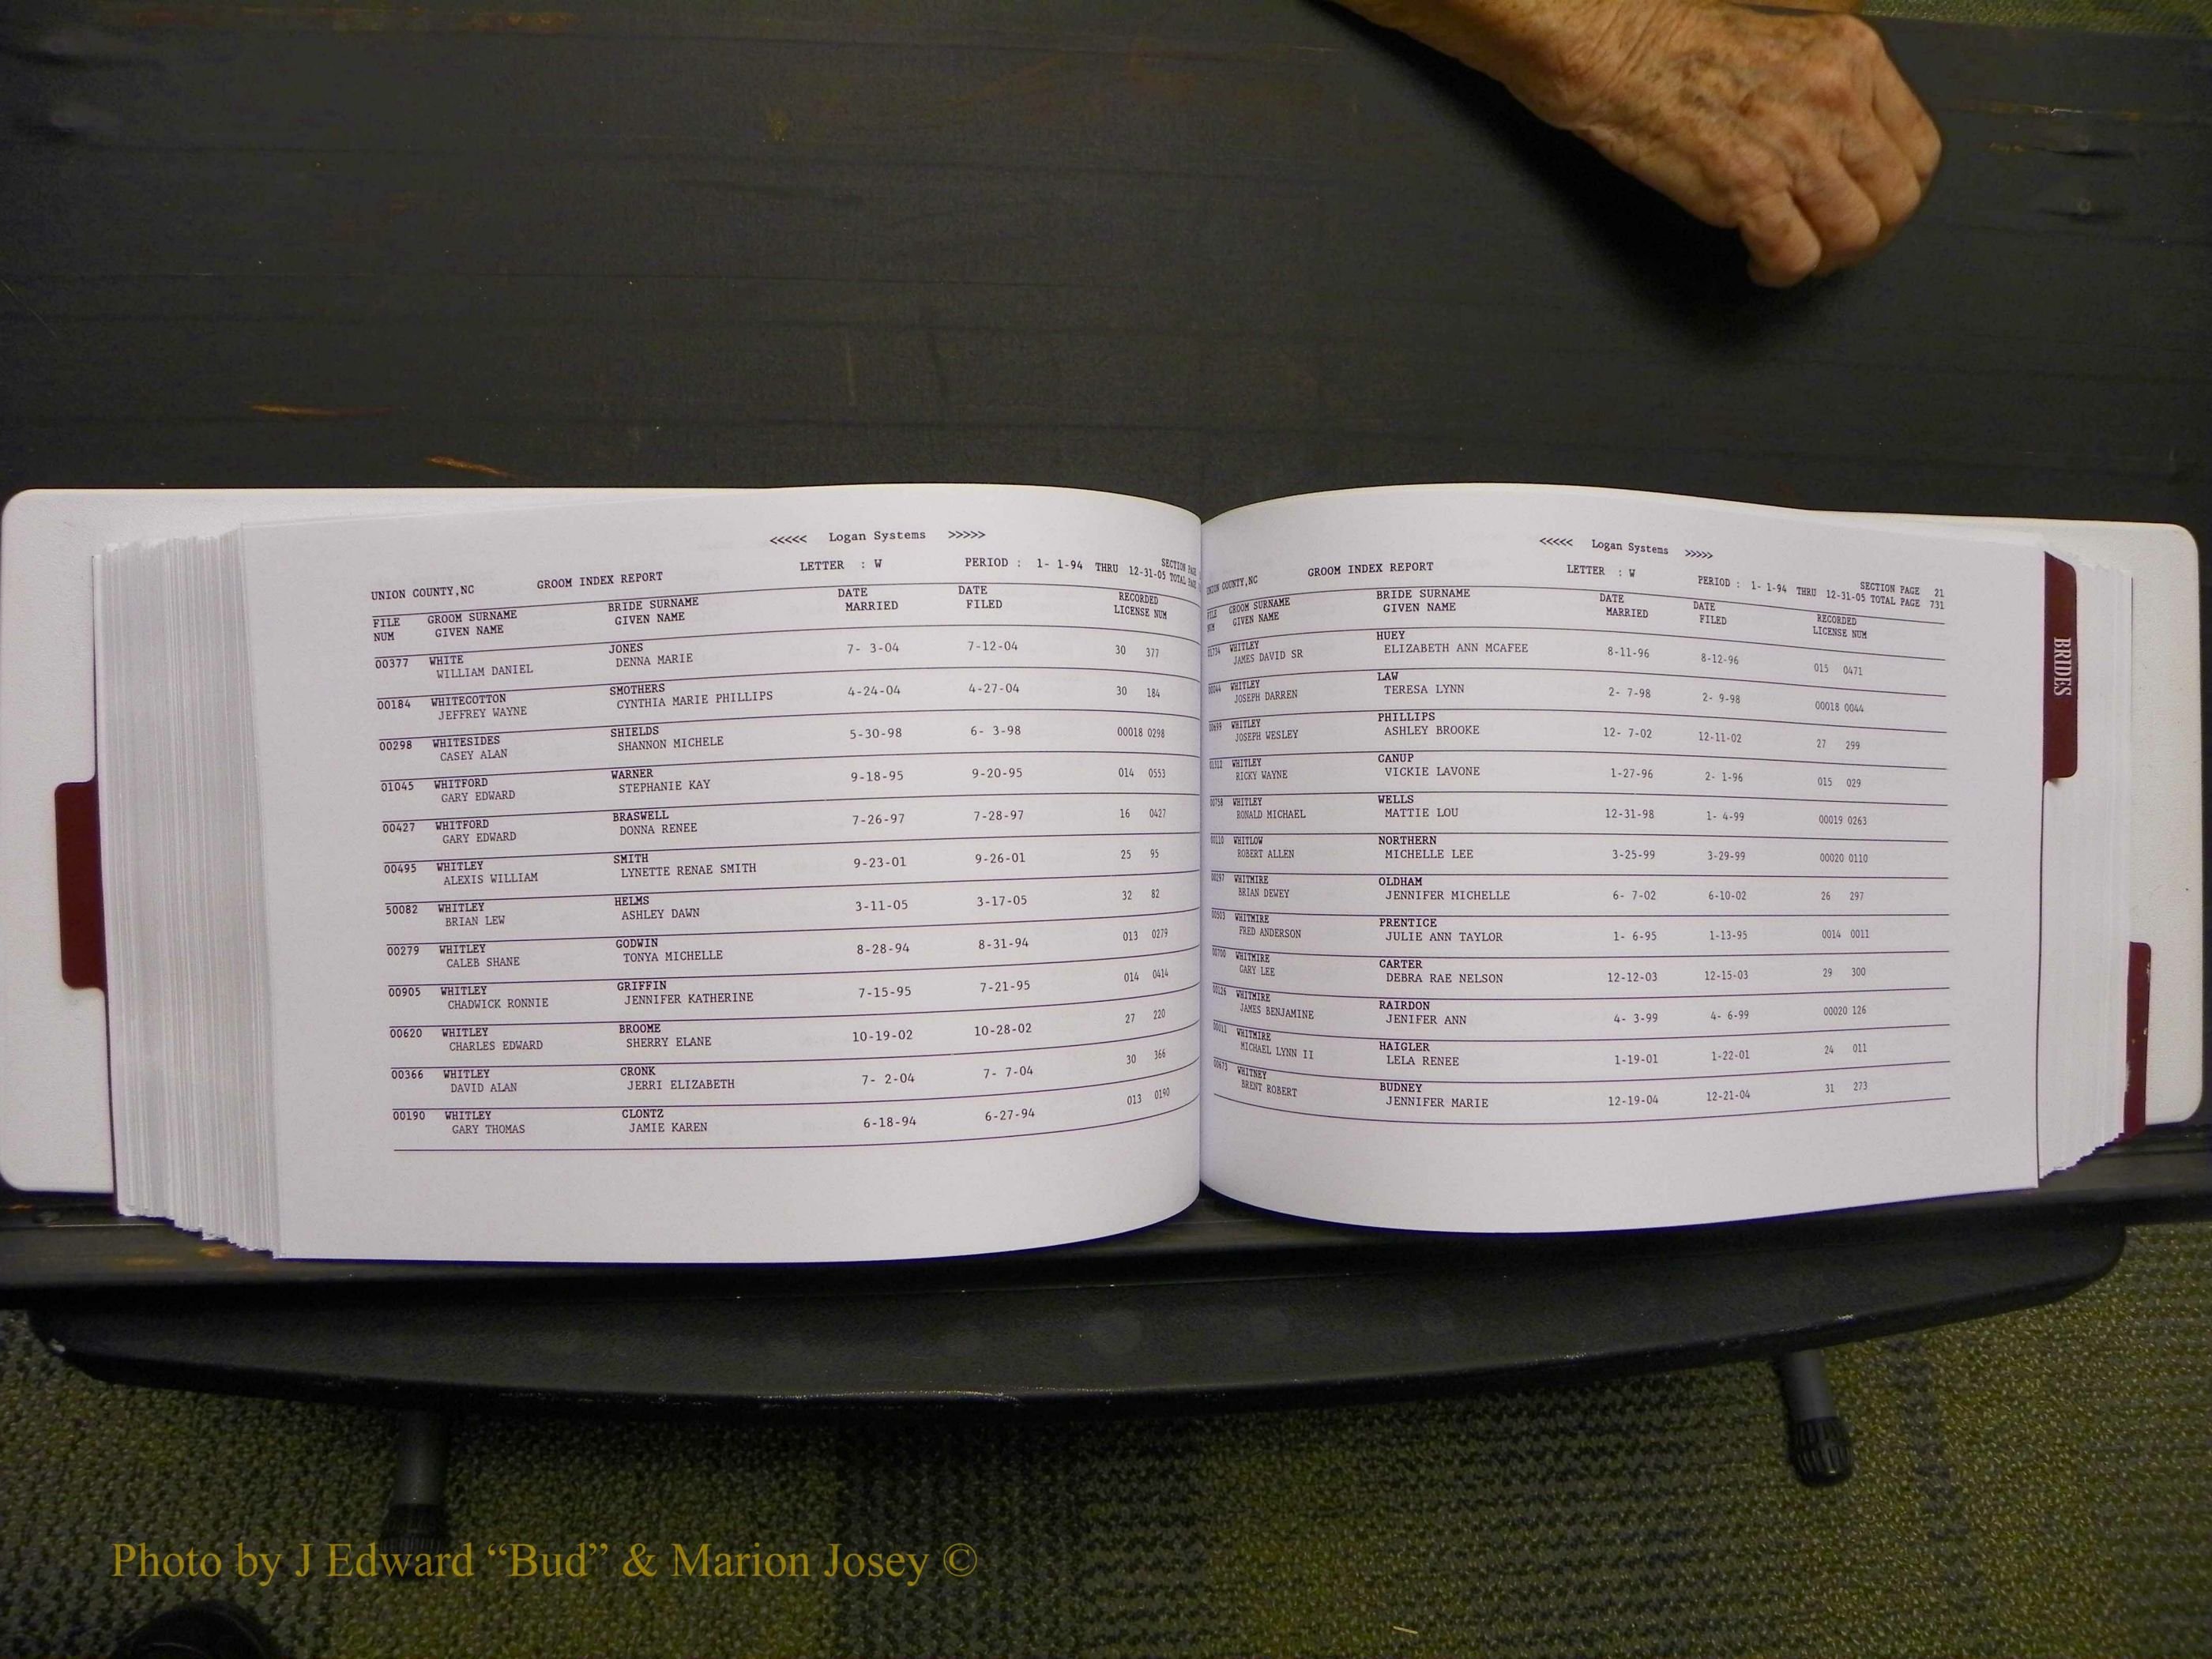 <<<<< Logan Systems >>>>>
UNION COUNTY,NC GROOM INDEX REPORT LETTER : W PERIOD : 1- 1-94 THRU 12-31-05 SECTION PAGE
TOTAL PAGE
FILE GROOM SURNAME BRIDE SURNAME DATE DATE RECORDED
NUM GIVEN NAME GIVEN NAME MARRIED FILED LICENSE NUM
00377 WHITE JONES 7- 3-04 7-12-04 30 377
WILLIAM DANIEL DENNA MARIE
00184 WHITECOTTON SMOTHERS 4-24-04 4-27-04 30 184
JEFFREY WAYNE CYNTHIA MARIE PHILLIPS
00298 WHITESIDES SHIELDS 5-30-98 6- 3-98 00018 0298
CASEY ALAN SHANNON MICHELE
01045 WHITFORD WARNER 9-18-95 9-20-95 014 0553
GARY EDWARD STEPHANIE KAY
00427 WHITFORD BRASWELL 7-26-97 7-28-97 16 0427
GARY EDWARD DONNA RENEE
00495 WHITLEY SMITH 9-23-01 9-26-01 25 95
ALEXIS WILLIAM LYNETTE RENAE SMITH
50082 WHITLEY HELMS 3-11-05 3-17-05 32 82
BRIAN LEW ASHLEY DAWN
00279 WHITLEY GODWIN 8-28-94 8-31-94 013 0279
CALEB SHANE TONYA MICHELLE
00905 WHITLEY GRIFFIN 7-15-95 7-21-95 014 0414
CHADWICK RONNIE JENNIFER KATHERINE
00620 WHITLEY BROOME 10-19-02 10-28-02 27 220
CHARLES EDWARD SHERRY ELANE
00366 WHITLEY CRONK 7- 2-04 7- 7-04 30 366
DAVID ALAN JERRI ELIZABETH
00190 WHITLEY CLONTZ 6-18-94 6-27-94 013 0190
GARY THOMAS JAMIE KAREN
<<<<< Logan Systems >>>>>
UNION COUNTY,NC GROOM INDEX REPORT LETTER : W PERIOD : 1- 1-94 THRU 12-31-05 SECTION PAGE 21
TOTAL PAGE 731
FILE GROOM SURNAME BRIDE SURNAME DATE DATE RECORDED
NUM GIVEN NAME GIVEN NAME MARRIED FILED LICENSE NUM
WHITLEY HUEY 8-11-96 8-12-96 015 0471
JAMES DAVID SR ELIZABETH ANN MCAFEE
00044 WHITLEY LAW 2- 7-98 2- 9-98 00018 0044
JOSEPH DARREN TERESA LYNN
00699 WHITLEY PHILLIPS 12- 7-02 12-11-02 27 299
JOSEPH WESLEY ASHLEY BROOKE
WHITLEY CANUP 1-27-96 2- 1-96 015 029
RICKY WAYNE VICKIE LAVONE
00758 WHITLEY WELLS 12-31-98 1- 4-99 00019 0263
RONALD MICHAEL MATTIE LOU
00110 WHITLOW NORTHERN 3-25-99 3-29-99 00020 0110
ROBERT ALLEN MICHELLE LEE
00297 WHITMIRE OLDHAM 6- 7-02 6-10-02 26 297
BRIAN DEWEY JENNIFER MICHELLE
00503 WHITMIRE PRENTICE 1- 6-95 1-13-95 0014 0011
FRED ANDERSON JULIE ANN TAYLOR
00700 WHITMIRE CARTER 12-12-03 12-15-03 29 300
GARY LEE DEBRA RAE NELSON
00126 WHITMIRE RAIRDON 4- 3-99 4- 6-99 00020 126
JAMES BENJAMINE JENIFER ANN
00011 WHITMIRE HAIGLER 1-19-01 1-22-01 24 011
MICHAEL LYNN II LELA RENEE
00673 WHITNEY BUDNEY 12-19-04 12-21-04 31 273
BRENT ROBERT JENNIFER MARIE
BRIDES
Photo by J Edward “Bud” & Marion Josey ©